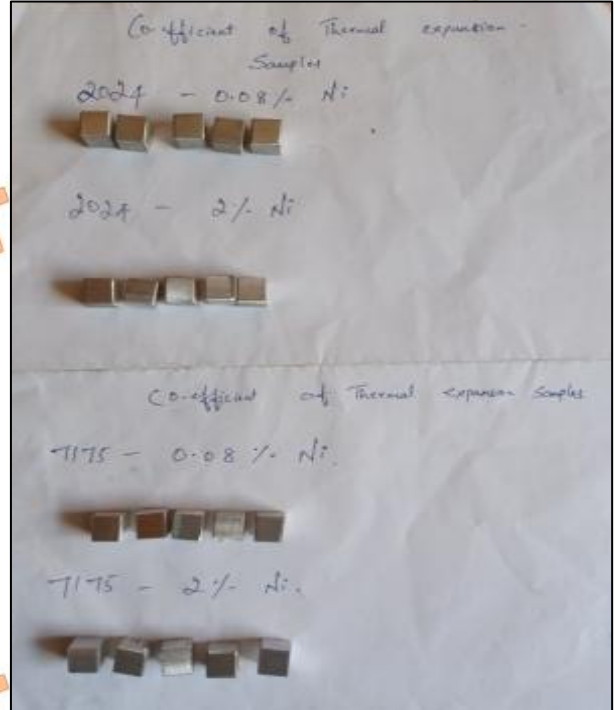 Co-efficient of Thermal expansion -
Samples
2024 - 0.08 % Ni
2024 - 2 % Ni
Co-efficient of Thermal expansion Samples
7175 - 0.08 % Ni.
7175 - 2 % Ni.